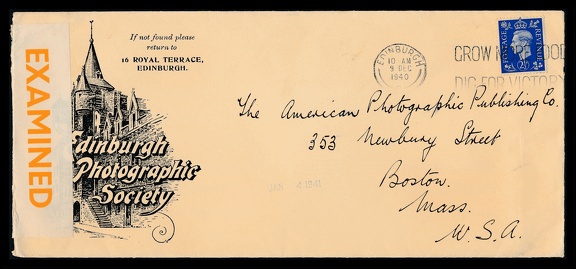 EXAMINED
If not found please
return to
16 ROYAL TERRACE,
EDINBURGH.
Edinburgh
Photographic
Society
EDINBURGH
10 AM
9 DEC
1940
GROW MORE FOOD
DIG FOR VICTORY
POSTAGE REVENUE
2½D
The American Photographic Publishing Co.
353 Newbury Street
Boston.
Mass.
U.S.A.
JAN 4 1941